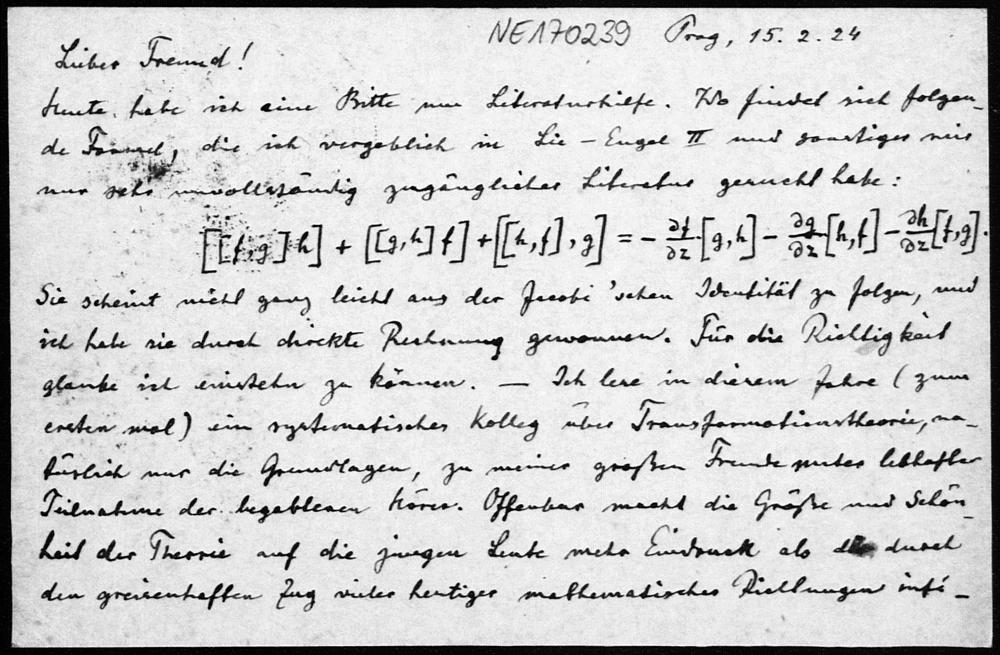 NE170239 Prag, 15. 2. 24
Lieber Freund!
Heute habe ich eine Bitte um Literaturhilfe. Wo findet sich folgen-
de Formel, die ich vergeblich in Lie – Engel II und sonstiger mir
nur sehr unvollständig zugänglicher Literatur gesucht habe:
[[f,g]h] + [[g,h]f] + [[h,f],g] = - ∂f/∂z [g,h] - ∂g/∂z [h,f] - ∂h/∂z [f,g].
Sie scheint nicht ganz leicht aus der Jacobi'schen Identität zu folgen, und
ich habe sie durch direkte Rechnung gewonnen. Für die Richtigkeit
glaube ich einstehn zu können. — Ich lese in diesem Jahre (zum
ersten mal) ein systematisches Kolleg über Transformationstheorie, na-
türlich nur die Grundlagen, zu meiner großen Freude unter lebhafter
Teilnahme der begabteren Hörer. Offenbar macht die Größe und Schön-
heit der Theorie auf die jungen Leute mehr Eindruck als durch
den greisenhaften Zug vieler heutiger mathematischer Richtungen infi-